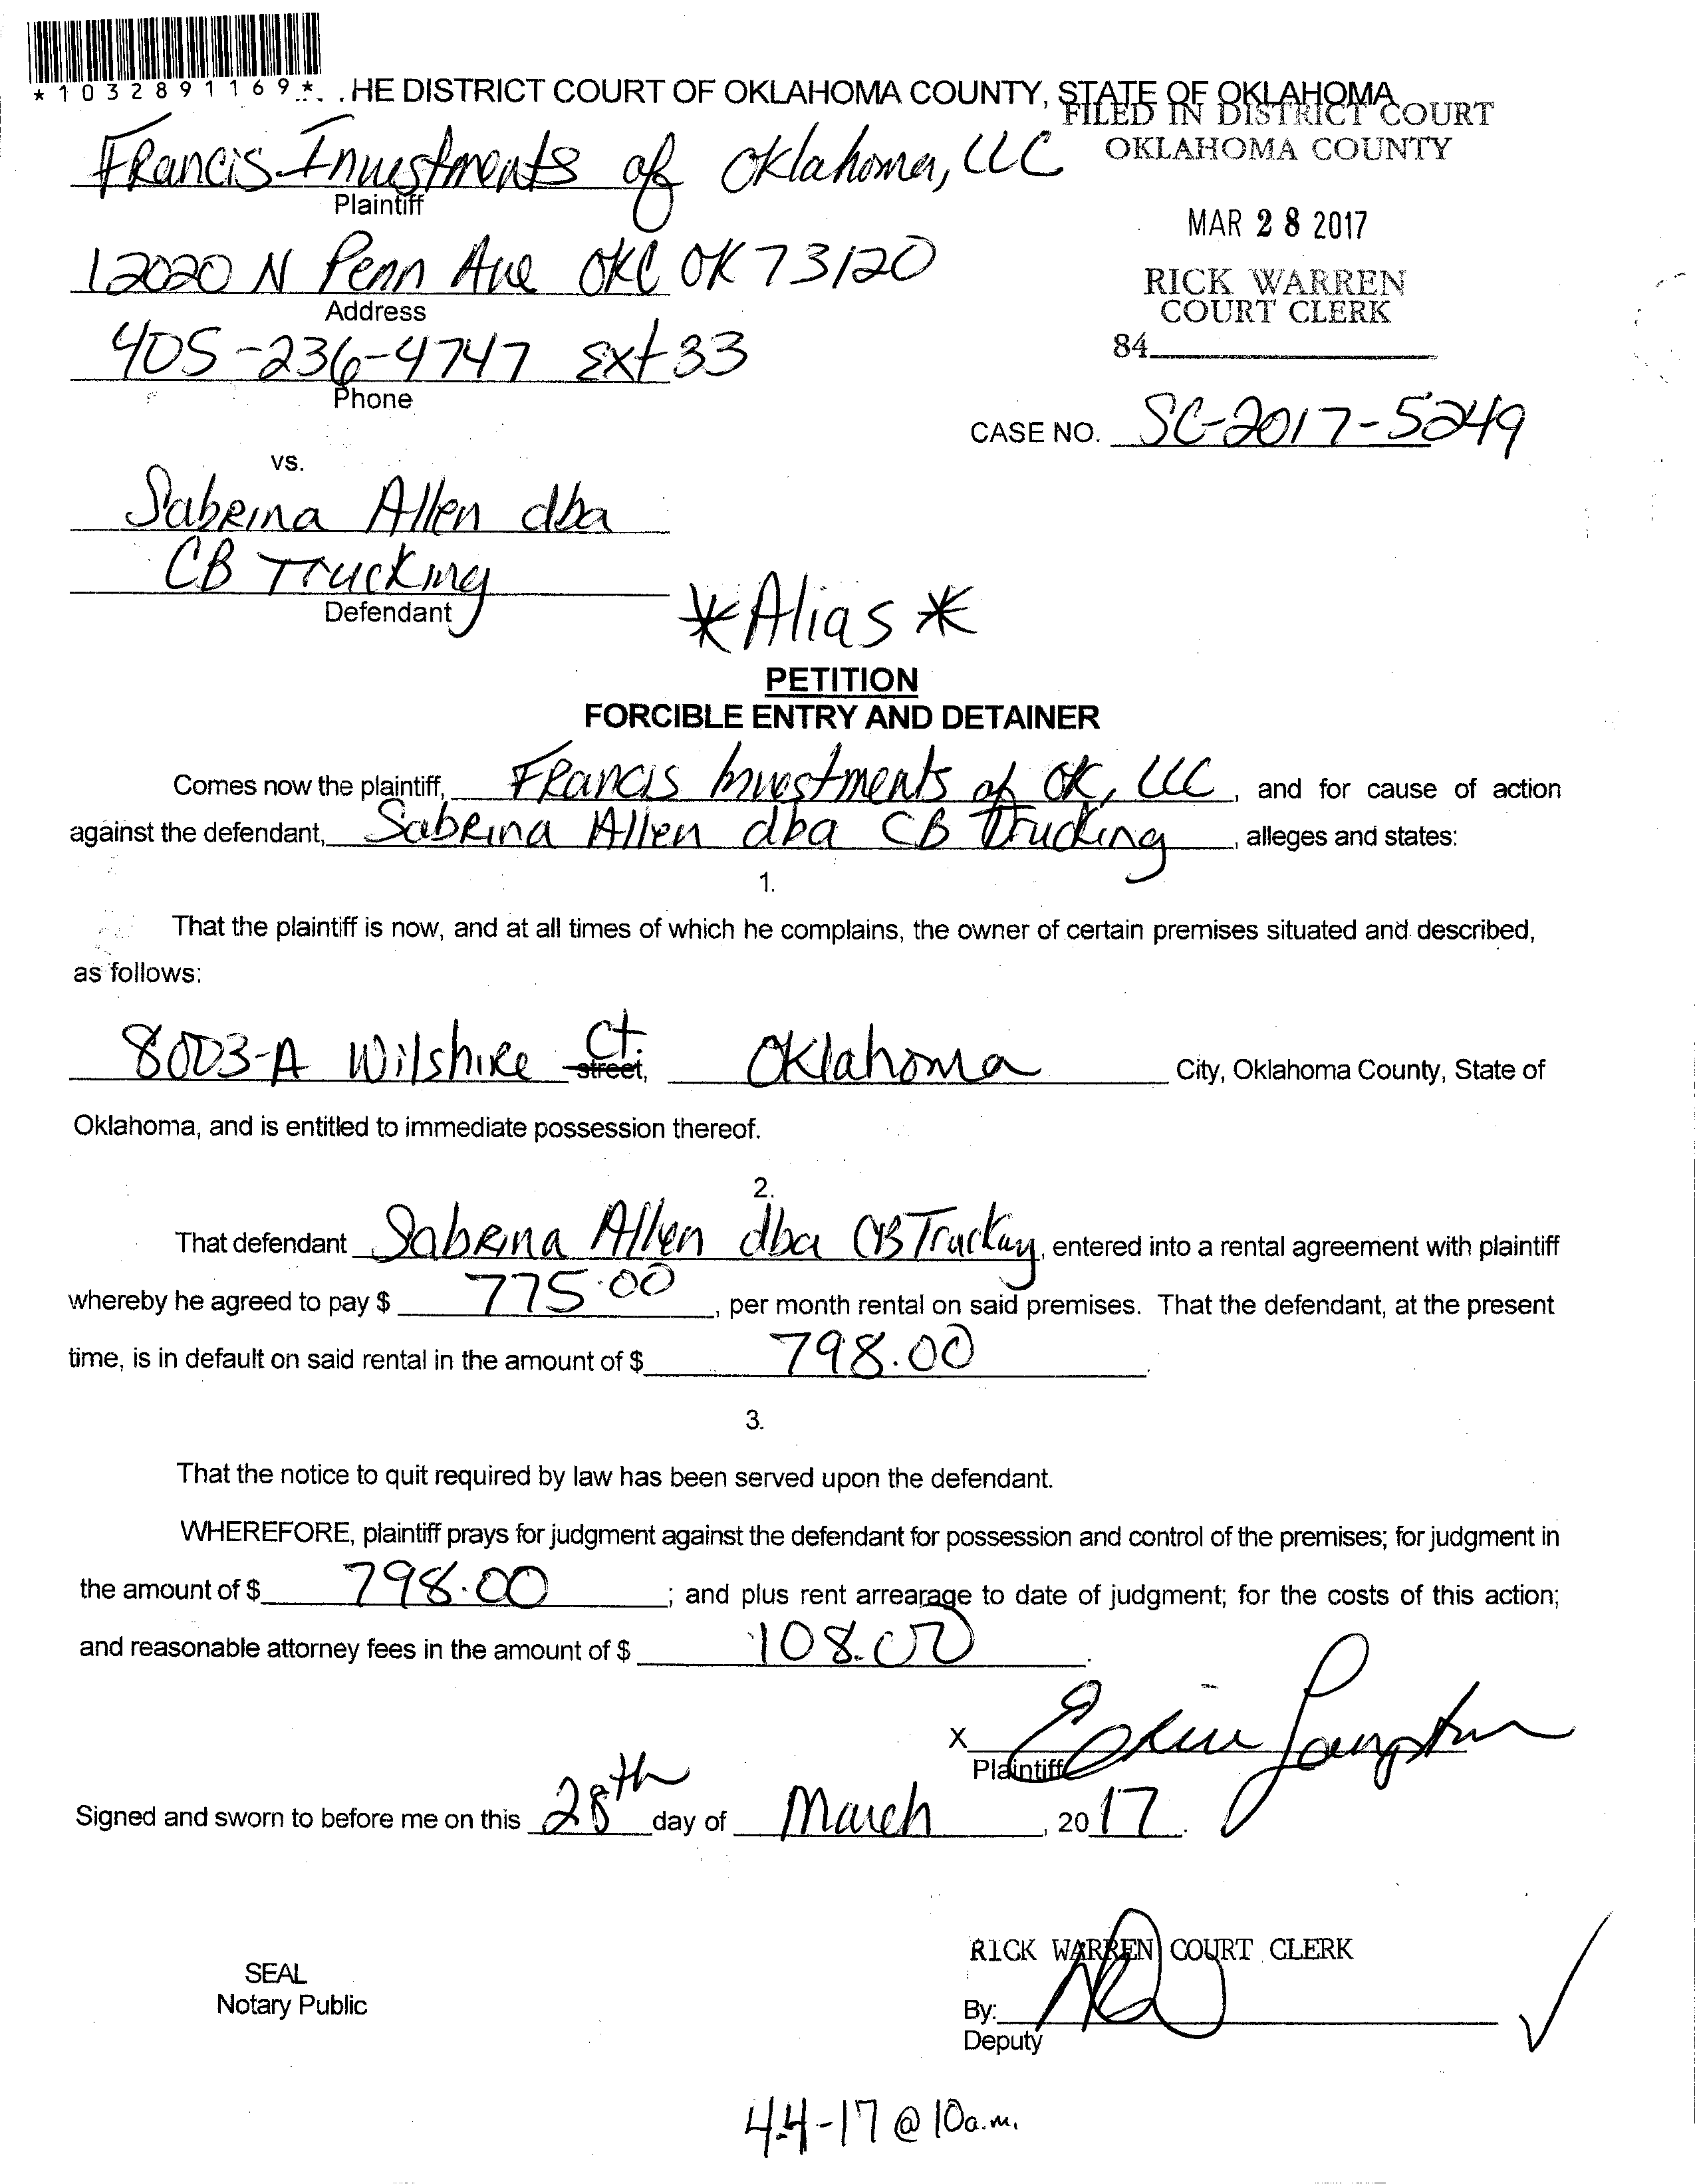 *1032891169*
HE DISTRICT COURT OF OKLAHOMA COUNTY, STATE OF OKLAHOMA
FILED IN DISTRICT COURT
OKLAHOMA COUNTY
Francis Investments of Oklahoma, LLC
Plaintiff
MAR 28 2017
12020 N Penn Ave OKC OK 73120
Address
RICK WARREN
COURT CLERK
405-236-4747 ext 33
Phone
84
CASE NO. SC-2017-5249
vs.
Sabrina Allen dba
CB Trucking
Defendant
*Alias*
PETITION
FORCIBLE ENTRY AND DETAINER
Comes now the plaintiff, Francis Investments of OK, LLC, and for cause of action
against the defendant, Sabrina Allen dba CB Trucking, alleges and states:
1.
That the plaintiff is now, and at all times of which he complains, the owner of certain premises situated and described,
as follows:
8003-A Wilshire Ct. street, Oklahoma City, Oklahoma County, State of
Oklahoma, and is entitled to immediate possession thereof.
2.
That defendant Sabrina Allen dba CB Trucking, entered into a rental agreement with plaintiff
whereby he agreed to pay $ 775.00, per month rental on said premises. That the defendant, at the present
time, is in default on said rental in the amount of $ 798.00.
3.
That the notice to quit required by law has been served upon the defendant.
WHEREFORE, plaintiff prays for judgment against the defendant for possession and control of the premises; for judgment in
the amount of $ 798.00; and plus rent arrearage to date of judgment; for the costs of this action;
and reasonable attorney fees in the amount of $ 108.00.
X
Plaintiff
Signed and sworn to before me on this 28th day of March, 2017.
RICK WARREN COURT CLERK
SEAL
Notary Public
By:
Deputy
4-4-17 @ 10a.m.